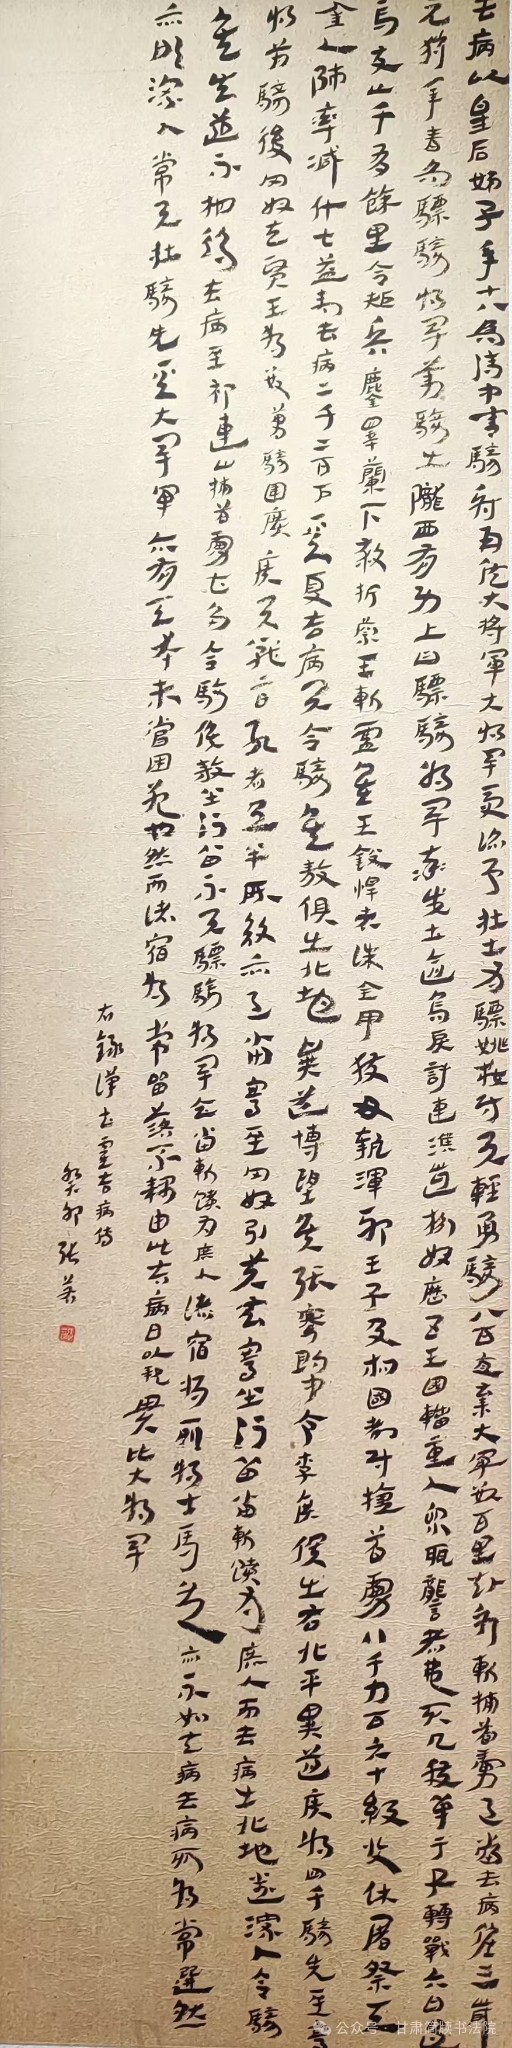 去病以皇后姊子年十八為侍中善騎射再從大將軍大將軍受詔予壯士為驃姚校尉與輕勇騎八百直棄大軍數百里赴利斬捕首虜過當去病侯三歲
元狩二年春為驃騎將軍將萬騎出隴西有功上曰驃騎將軍率戎士隃烏戾討遬濮涉狐奴歷五王國輜重人眾攝讋者弗取幾獲單于子轉戰六日過
焉支山千有餘里合短兵鏖皋蘭下殺折蘭王斬盧侯王銳悍者誅全甲獲醜執渾邪王子及相國都尉捷首虜八千九百六十級收休屠祭天
金人師率減什七益封去病二千二百戶其夏去病與合騎侯敖俱出北地異道博望侯張騫郎中令李廣俱出右北平異道廣將四千騎先至騫
將萬騎後匈奴左賢王將數萬騎圍廣廣與戰二日死者過半所殺亦過當騫至匈奴引兵去騫坐行留當斬贖為庶人而去病出北地遂深入合騎
侯失道不相得去病至祁連山捕首虜甚多合騎侯敖坐行留不與驃騎將軍會當斬贖為庶人諸宿將所將士馬兵亦不如去病去病所將常選然
亦敢深入常與壯騎先其大軍軍亦有天幸未嘗困絕也然而諸宿將常留落不耦由此去病日以親貴比大將軍
右錄漢書霍去病傳
癸卯張美
公众号·甘肃简牍书法院